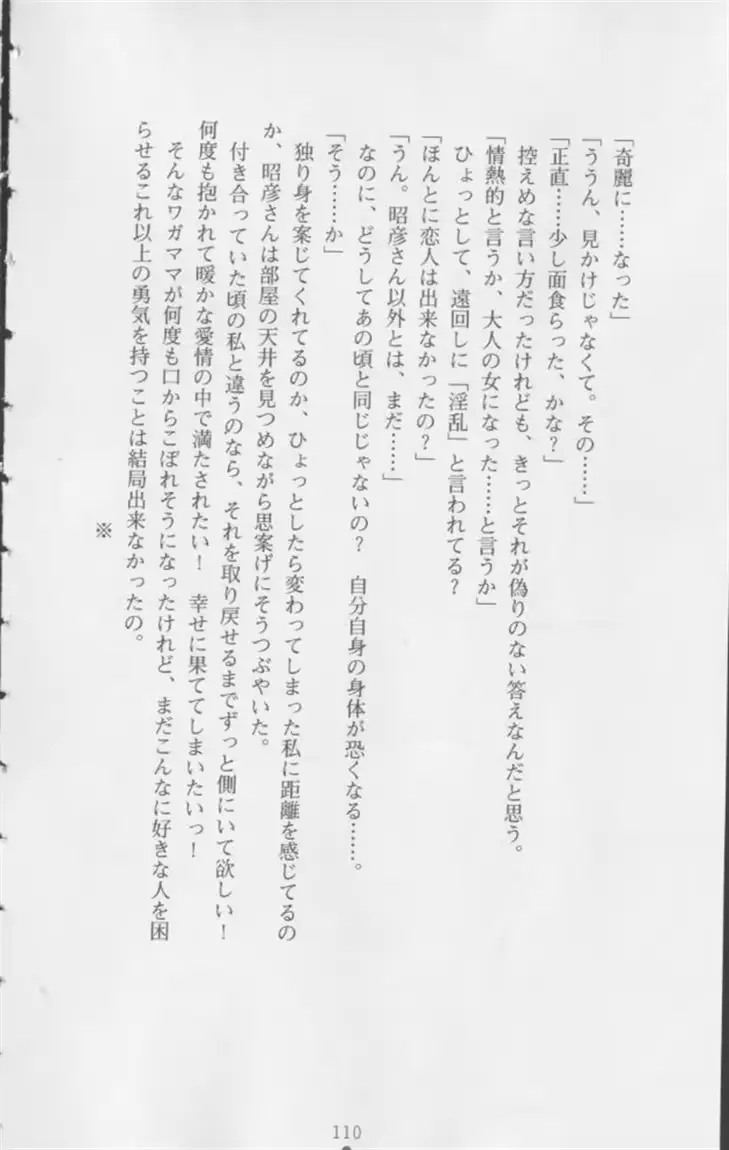 「奇麗に……なった」
「ううん、見かけじゃなくて。その……」
「正直……少し面食らった、かな？」
　控えめな言い方だったけれども、きっとそれが偽りのない答えなんだと思う。
「情熱的と言うか、大人の女になった……と言うか」
　ひょっとして、遠回しに「淫乱」と言われてる？
「ほんとに恋人は出来なかったの？」
「うん。昭彦さん以外とは、まだ……」
　なのに、どうしてあの頃と同じじゃないの？　自分自身の身体が恐くなる……。
「そう……か」
　独り身を案じてくれてるのか、ひょっとしたら変わってしまった私に距離を感じてるの
か、昭彦さんは部屋の天井を見つめながら思案げにそうつぶやいた。
　付き合っていた頃の私と違うのなら、それを取り戻せるまでずっと側にいて欲しい！
何度も抱かれて暖かな愛情の中で満たされたい！　幸せに果ててしまいたいっ！
　そんなワガママが何度も口からこぼれそうになったけれど、まだこんなに好きな人を困
らせるこれ以上の勇気を持つことは結局出来なかったの。
※
110